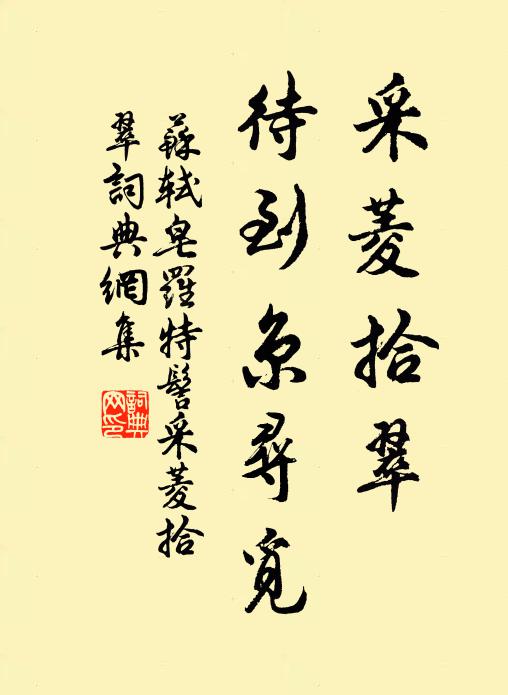 采菱拾翠
待到京尋覓
蘇軾皂羅特髻采菱拾
翠詞典網集
詞典
网印